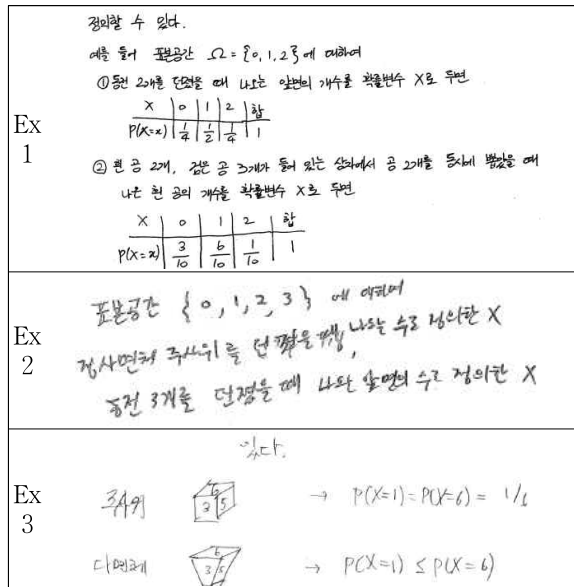 정의할 수 있다.
예를 들어 표본공간 Ω = {0, 1, 2}에 대하여
① 동전 2개를 던졌을 때 나오는 앞면의 개수를 확률변수 X로 두면
X 0 1 2 합
P(X=x) 1/4 1/2 1/4 1
Ex 1
② 흰 공 2개, 검은 공 3개가 들어 있는 상자에서 공 2개를 동시에 뽑았을 때
나온 흰 공의 개수를 확률변수 X로 두면
X 0 1 2 합
P(X=x) 3/10 6/10 1/10 1
표본공간 {0, 1, 2, 3} 에 대하여
Ex 2
정사면체 주사위를 던졌을 때, 나오는 수로 정의한 X
동전 3개를 던졌을 때 나오는 앞면의 수로 정의한 X
있다.
Ex 3
주사위 6 3 5 → P(X=1) = P(X=6) = 1/6
다면체 6 3 5 → P(X=1) ≤ P(X=6)